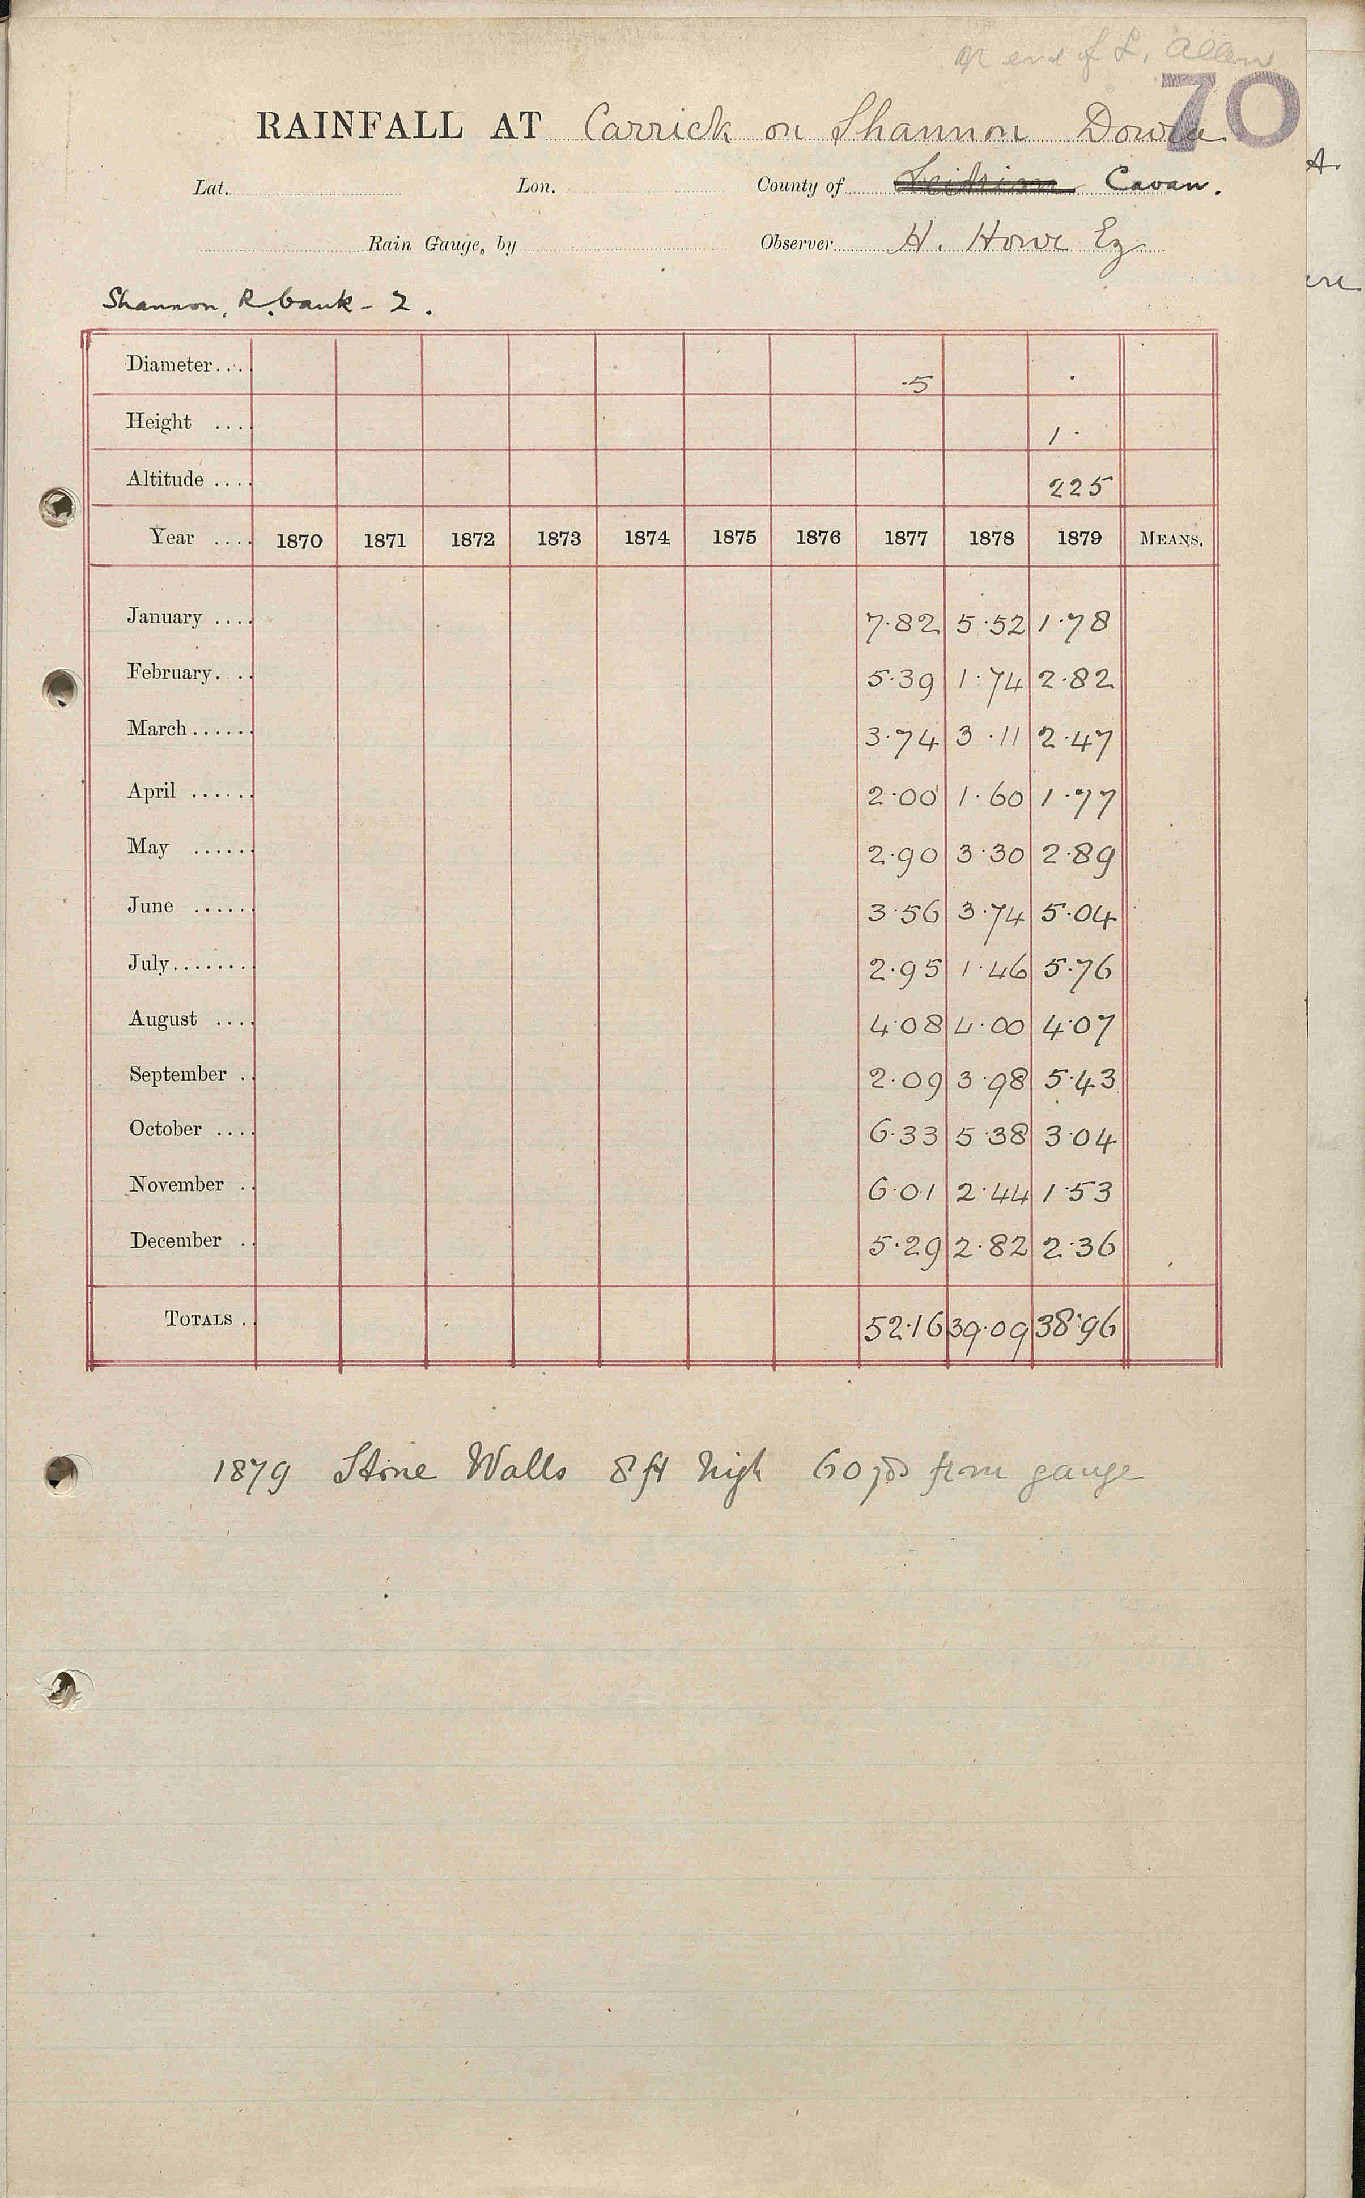 end of L. Allen
70
RAINFALL AT Carrick on Shannon Dowra
Lat. Lon. County of Leitrim Cavan.
Rain Gauge, by Observer H. Howe Esq
Shannon, R. bank - 2.
Diameter.... ·5
Height .... 1·
Altitude .... 225
Year .... 1870 1871 1872 1873 1874 1875 1876 1877 1878 1879 MEANS.
January .... 7·82 5·52 1·78
February. . . 5·39 1·74 2·82
March...... 3·74 3·11 2·47
April ...... 2·00 1·60 1·77
May ...... 2·90 3·30 2·89
June ...... 3·56 3·74 5·04
July........ 2·95 1·46 5·76
August .... 4·08 4·00 4·07
September . . 2·09 3·98 5·43
October .... 6·33 5·38 3·04
November . . 6·01 2·44 1·53
December . . 5·29 2·82 2·36
TOTALS . . 52·16 39·09 38·96
1879 Stone Walls 8 ft high 60 yds from gauge